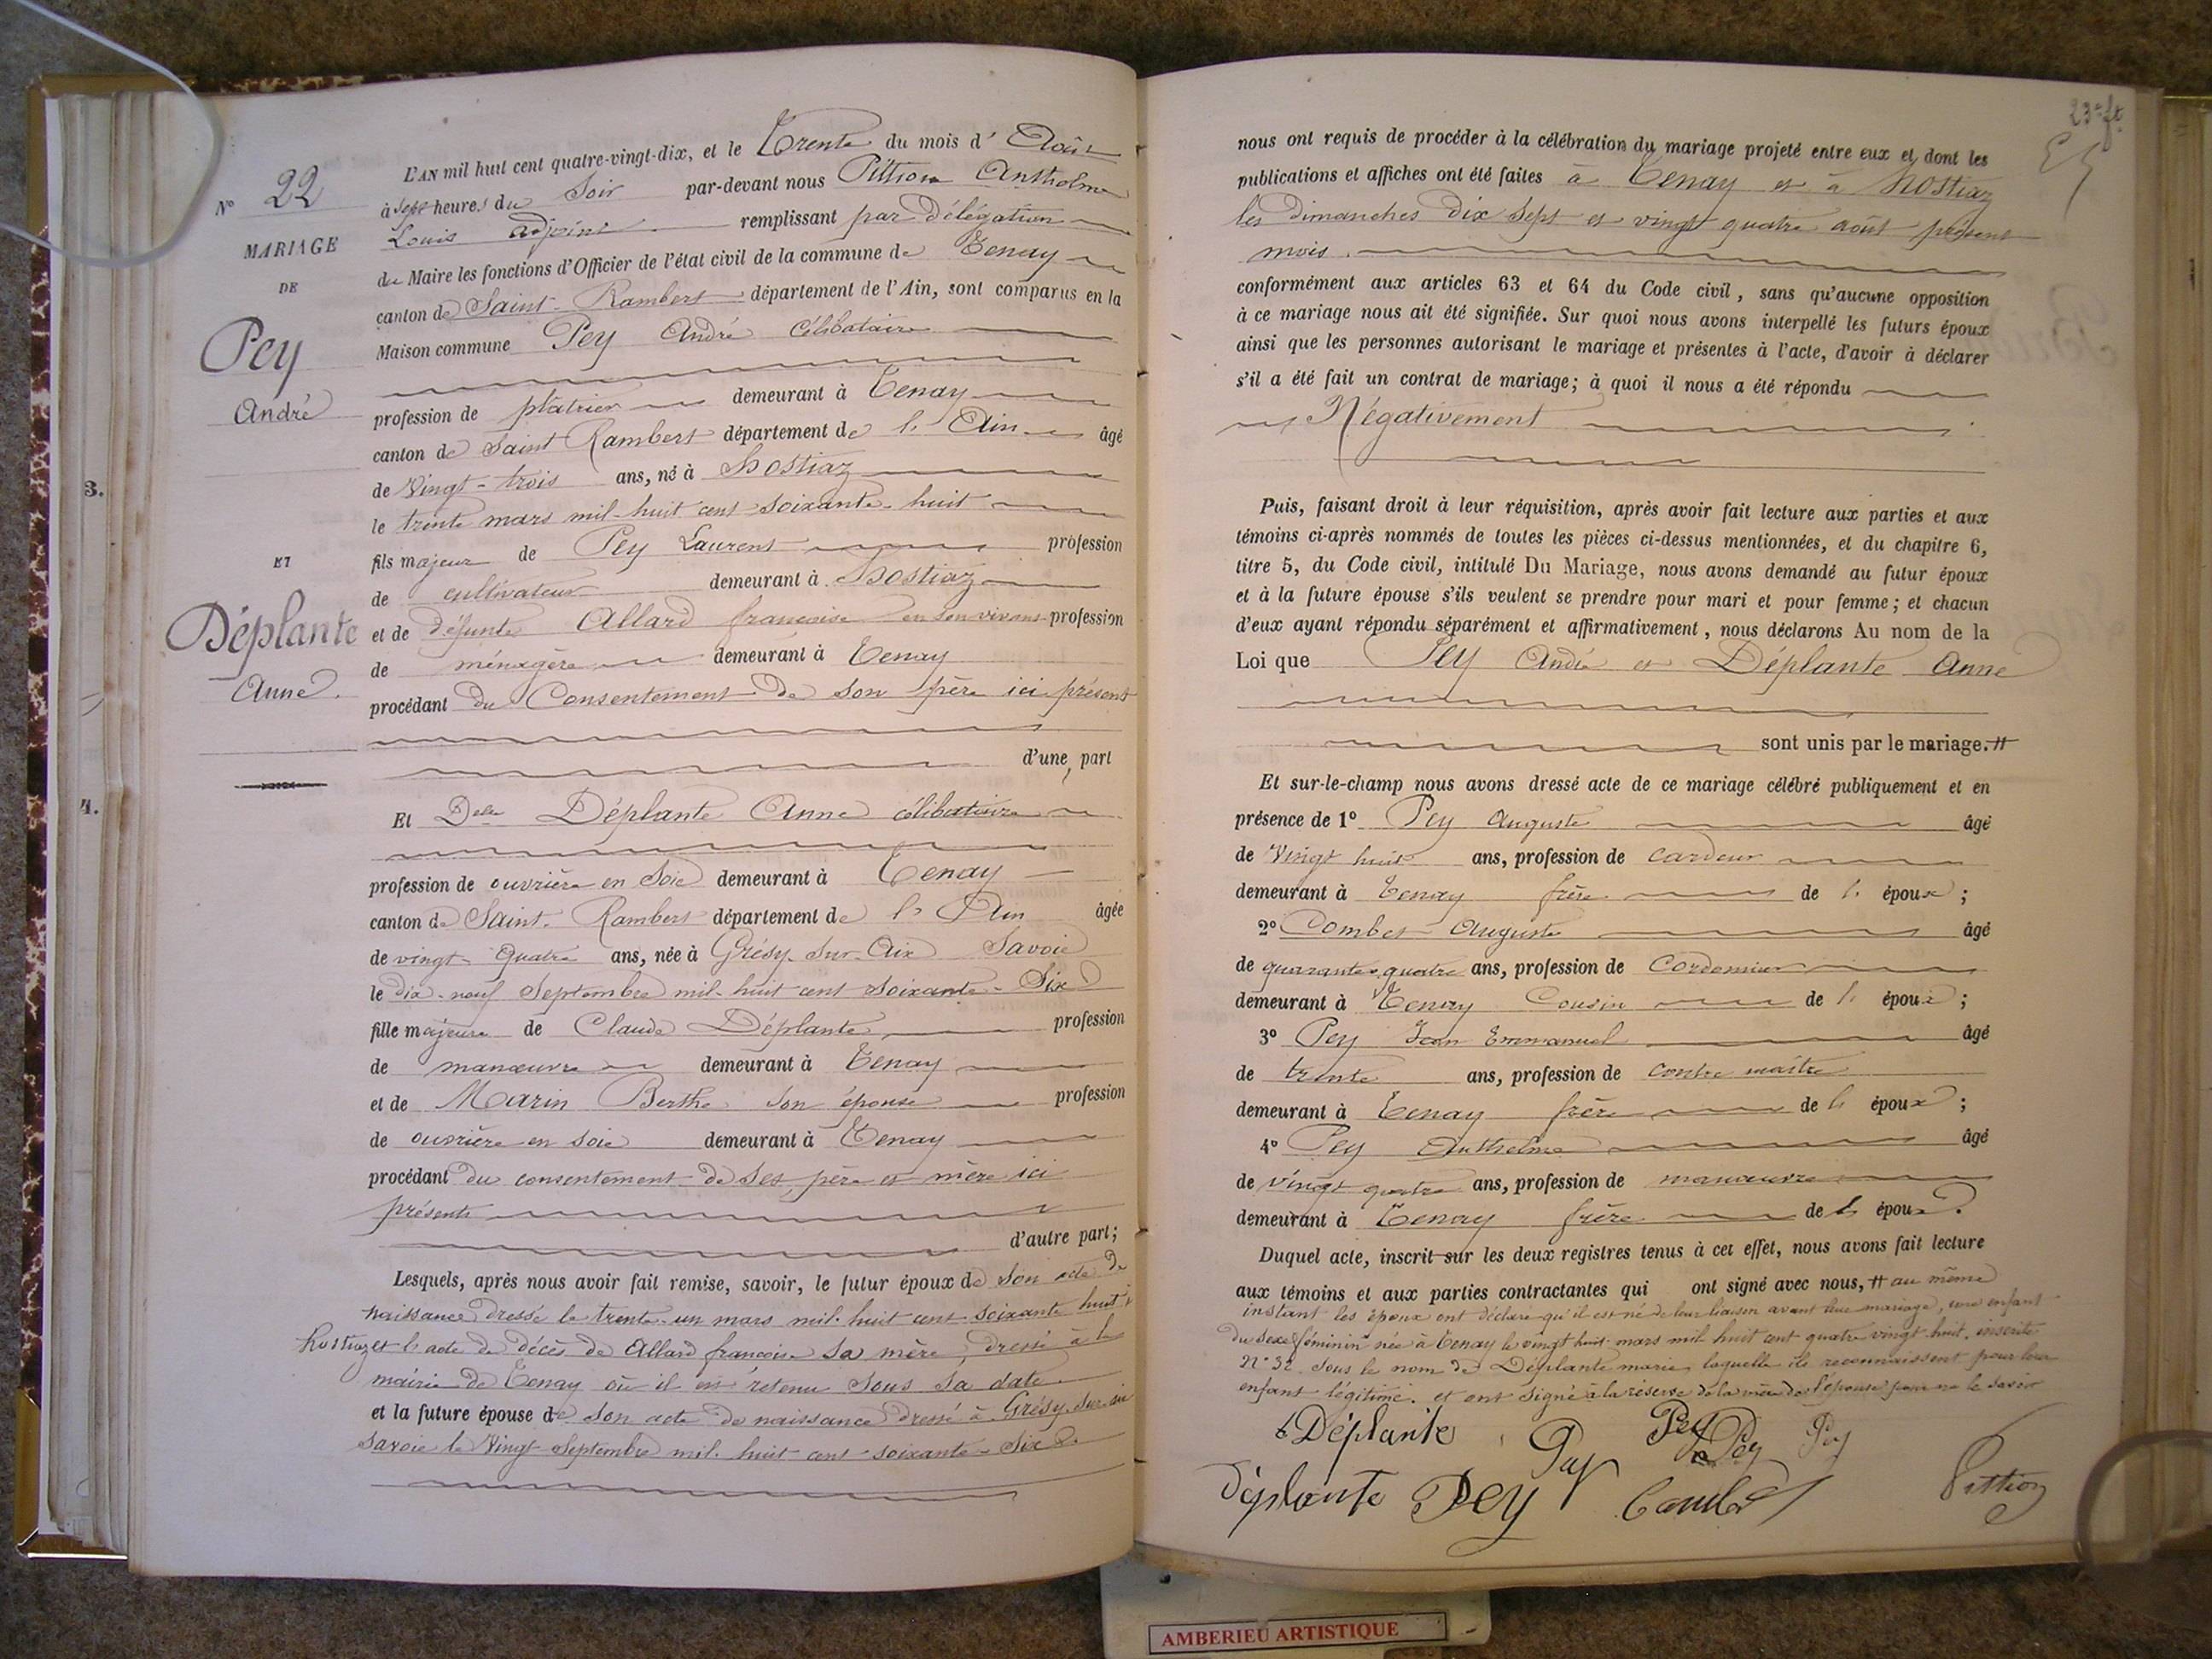 Nº 22
MARIAGE
DE
Pey
André
ET
Déplante
Anne
3.
4.
L'AN mil huit cent quatre-vingt-dix, et le Trente du mois d' Août
à Sept heures du Soir par-devant nous Pittion Anthelme
Louis adjoint remplissant par Délégation
du Maire les fonctions d'Officier de l'état civil de la commune de Tenay
canton de Saint-Rambert département de l'Ain, sont comparus en la
Maison commune Pey André Célibataire
profession de platrier demeurant à Tenay
canton de Saint Rambert département de l' Ain âgé
de Vingt-trois ans, né à Hostiaz
le trente mars mil-huit cent soixante-huit
fils majeur de Pey Laurent profession
de cultivateur demeurant à Hostiaz
et de défunte Allard françoise en son vivant profession
de ménagère demeurant à Tenay
procédant du Consentement de son père ici présent
d'une part
Et Delle Déplante Anne célibataire
profession de ouvrière en Soie demeurant à Tenay
canton de Saint-Rambert département de l' Ain âgée
de vingt-quatre ans, née à Grésy-sur-Aix Savoie
le dix-neuf Septembre mil-huit cent soixante-Six
fille majeure de Claude Déplante profession
de manœuvre demeurant à Tenay
et de Marin Berthe son épouse profession
de ouvrière en soie demeurant à Tenay
procédant du consentement de Ses père et mère ici
présents
d'autre part;
Lesquels, après nous avoir fait remise, savoir, le futur époux de son acte de
naissance dressé le trente-un mars mil-huit cent-soixante huit à
hostiaz et l'acte de décès de Allard françoise sa mère, dressé à la
mairie de Tenay où il est retenu sous sa date
et la future épouse de son acte de naissance dressé à Grésy-sur-aix
savoie le Vingt Septembre mil-huit-cent-soixante-Six
23e ft
nous ont requis de procéder à la célébration du mariage projeté entre eux et dont les
publications et affiches ont été faites à Tenay et à hostiaz
les dimanches dix Sept et vingt quatre août présent
mois.
conformément aux articles 63 et 64 du Code civil, sans qu'aucune opposition
à ce mariage nous ait été signifiée. Sur quoi nous avons interpellé les futurs époux
ainsi que les personnes autorisant le mariage et présentes à l'acte, d'avoir à déclarer
s'il a été fait un contrat de mariage; à quoi il nous a été répondu
Négativement
Puis, faisant droit à leur réquisition, après avoir fait lecture aux parties et aux
témoins ci-après nommés de toutes les pièces ci-dessus mentionnées, et du chapitre 6,
titre 5, du Code civil, intitulé Du Mariage, nous avons demandé au futur époux
et à la future épouse s'ils veulent se prendre pour mari et pour femme; et chacun
d'eux ayant répondu séparément et affirmativement, nous déclarons Au nom de la
Loi que Pey André et Déplante Anne
sont unis par le mariage. #
Et sur-le-champ nous avons dressé acte de ce mariage célébré publiquement et en
présence de 1º Pey Auguste âgé
de Vingt huit ans, profession de cardeur
demeurant à Tenay frère de l' époux;
2º Combet Auguste âgé
de quarante-quatre ans, profession de Cordonnier
demeurant à Tenay Cousin de l' époux;
3º Pey Jean Emmanuel âgé
de trente ans, profession de contre maître
demeurant à Tenay frère de l' époux;
4º Pey Anthelme âgé
de vingt quatre ans, profession de manœuvre
demeurant à Tenay frère de l' époux.
Duquel acte, inscrit sur les deux registres tenus à cet effet, nous avons fait lecture
aux témoins et aux parties contractantes qui ont signé avec nous, # au même
instant les époux ont déclaré qu'il est né de leur liaison avant leur mariage, une enfant
du sexe féminin née à Tenay le vingt huit mars mil huit cent quatre vingt huit, inscrite
nº 32 sous le nom de Déplante marie, laquelle ils reconnaissent pour leur
enfant légitime. et ont signé à la réserve de la mère de l'épouse pour ne le savoir
Déplante Pey Pey Pey Pey
Déplante Pey Combet Pittion
AMBERIEU ARTISTIQUE